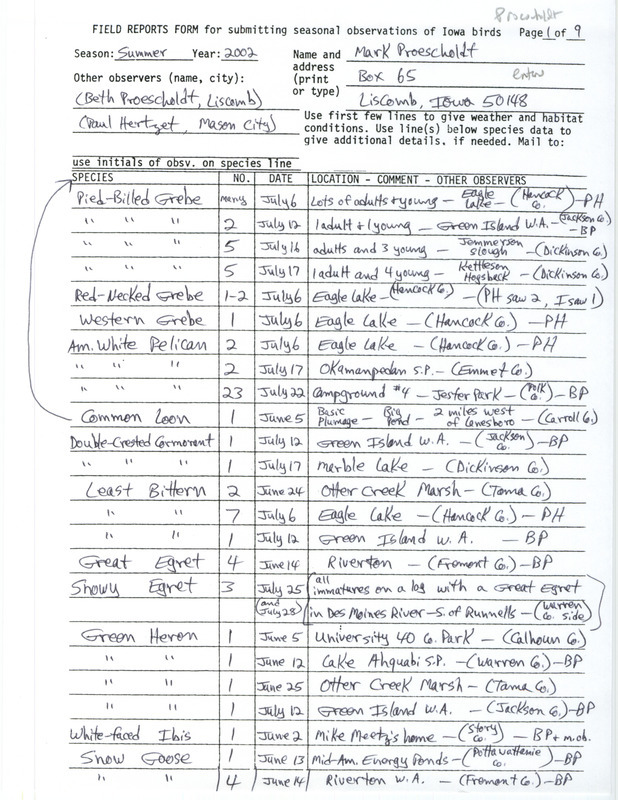 Proescholdt
FIELD REPORTS FORM for submitting seasonal observations of Iowa birds Page 1 of 9
Season: Summer Year: 2002 Name and Mark Proescholdt
address
Other observers (name, city): (print Box 65 enter
or type)
(Beth Proescholdt, Liscomb) Liscomb, Iowa 50148
(Paul Hertzel, Mason City) Use first few lines to give weather and habitat
conditions. Use line(s) below species data to
give additional details, if needed. Mail to:
use initials of obsv. on species line
SPECIES NO. DATE LOCATION - COMMENT - OTHER OBSERVERS
Pied-Billed Grebe many July 6 Lots of adults + young - Eagle Lake - (Hancock Co.) - PH
" " " 2 July 12 1 adult + 1 young - Green Island W.A. - (Jackson Co.) - BP
" " " 5 July 16 adults and 3 young - Jemmerson Slough - (Dickinson Co.)
" " " 5 July 17 1 adult and 4 young - Kettleson Hogsback - (Dickinson Co.)
Red-Necked Grebe 1-2 July 6 Eagle Lake - (Hancock Co.) - (PH saw 2, I saw 1)
Western Grebe 1 July 6 Eagle Lake - (Hancock Co.) - PH
Am. White Pelican 2 July 6 Eagle Lake - (Hancock Co.) - PH
" " " 2 July 17 Okamanpedan S.P. - (Emmet Co.)
" " " 23 July 22 Campground #4 - Jester Park - (Polk Co.) - BP
Common Loon 1 June 5 Basic Plumage - Big Pond - 2 miles west of Lanesboro - (Carroll Co.)
Double-Crested Cormorant 1 July 12 Green Island W.A. - (Jackson Co.) - BP
" " " 1 July 17 Marble Lake - (Dickinson Co.)
Least Bittern 2 June 24 Otter Creek Marsh - (Tama Co.)
" " 7 July 6 Eagle Lake - (Hancock Co.) - PH
" " 1 July 12 Green Island W.A. - BP
Great Egret 4 June 14 Riverton - (Fremont Co.) - BP
Snowy Egret 3 July 25 all immatures on a log with a Great Egret
(and July 28) in Des Moines River - S. of Runnells - (Warren Co. side)
Green Heron 1 June 5 University 40 Co. Park - (Calhoun Co.)
" " 1 June 12 Lake Ahquabi S.P. - (Warren Co.) - BP
" " 1 June 25 Otter Creek Marsh - (Tama Co.)
" " 1 July 12 Green Island W.A. - (Jackson Co.) - BP
White-faced Ibis 1 June 2 Mike Meetz's home - (Story Co.) - BP + m.ob.
Snow Goose 1 June 13 Mid-Am. Energy Ponds - (Pottawattamie Co.)
" " 4 June 14 Riverton W.A. - (Fremont Co.) - BP